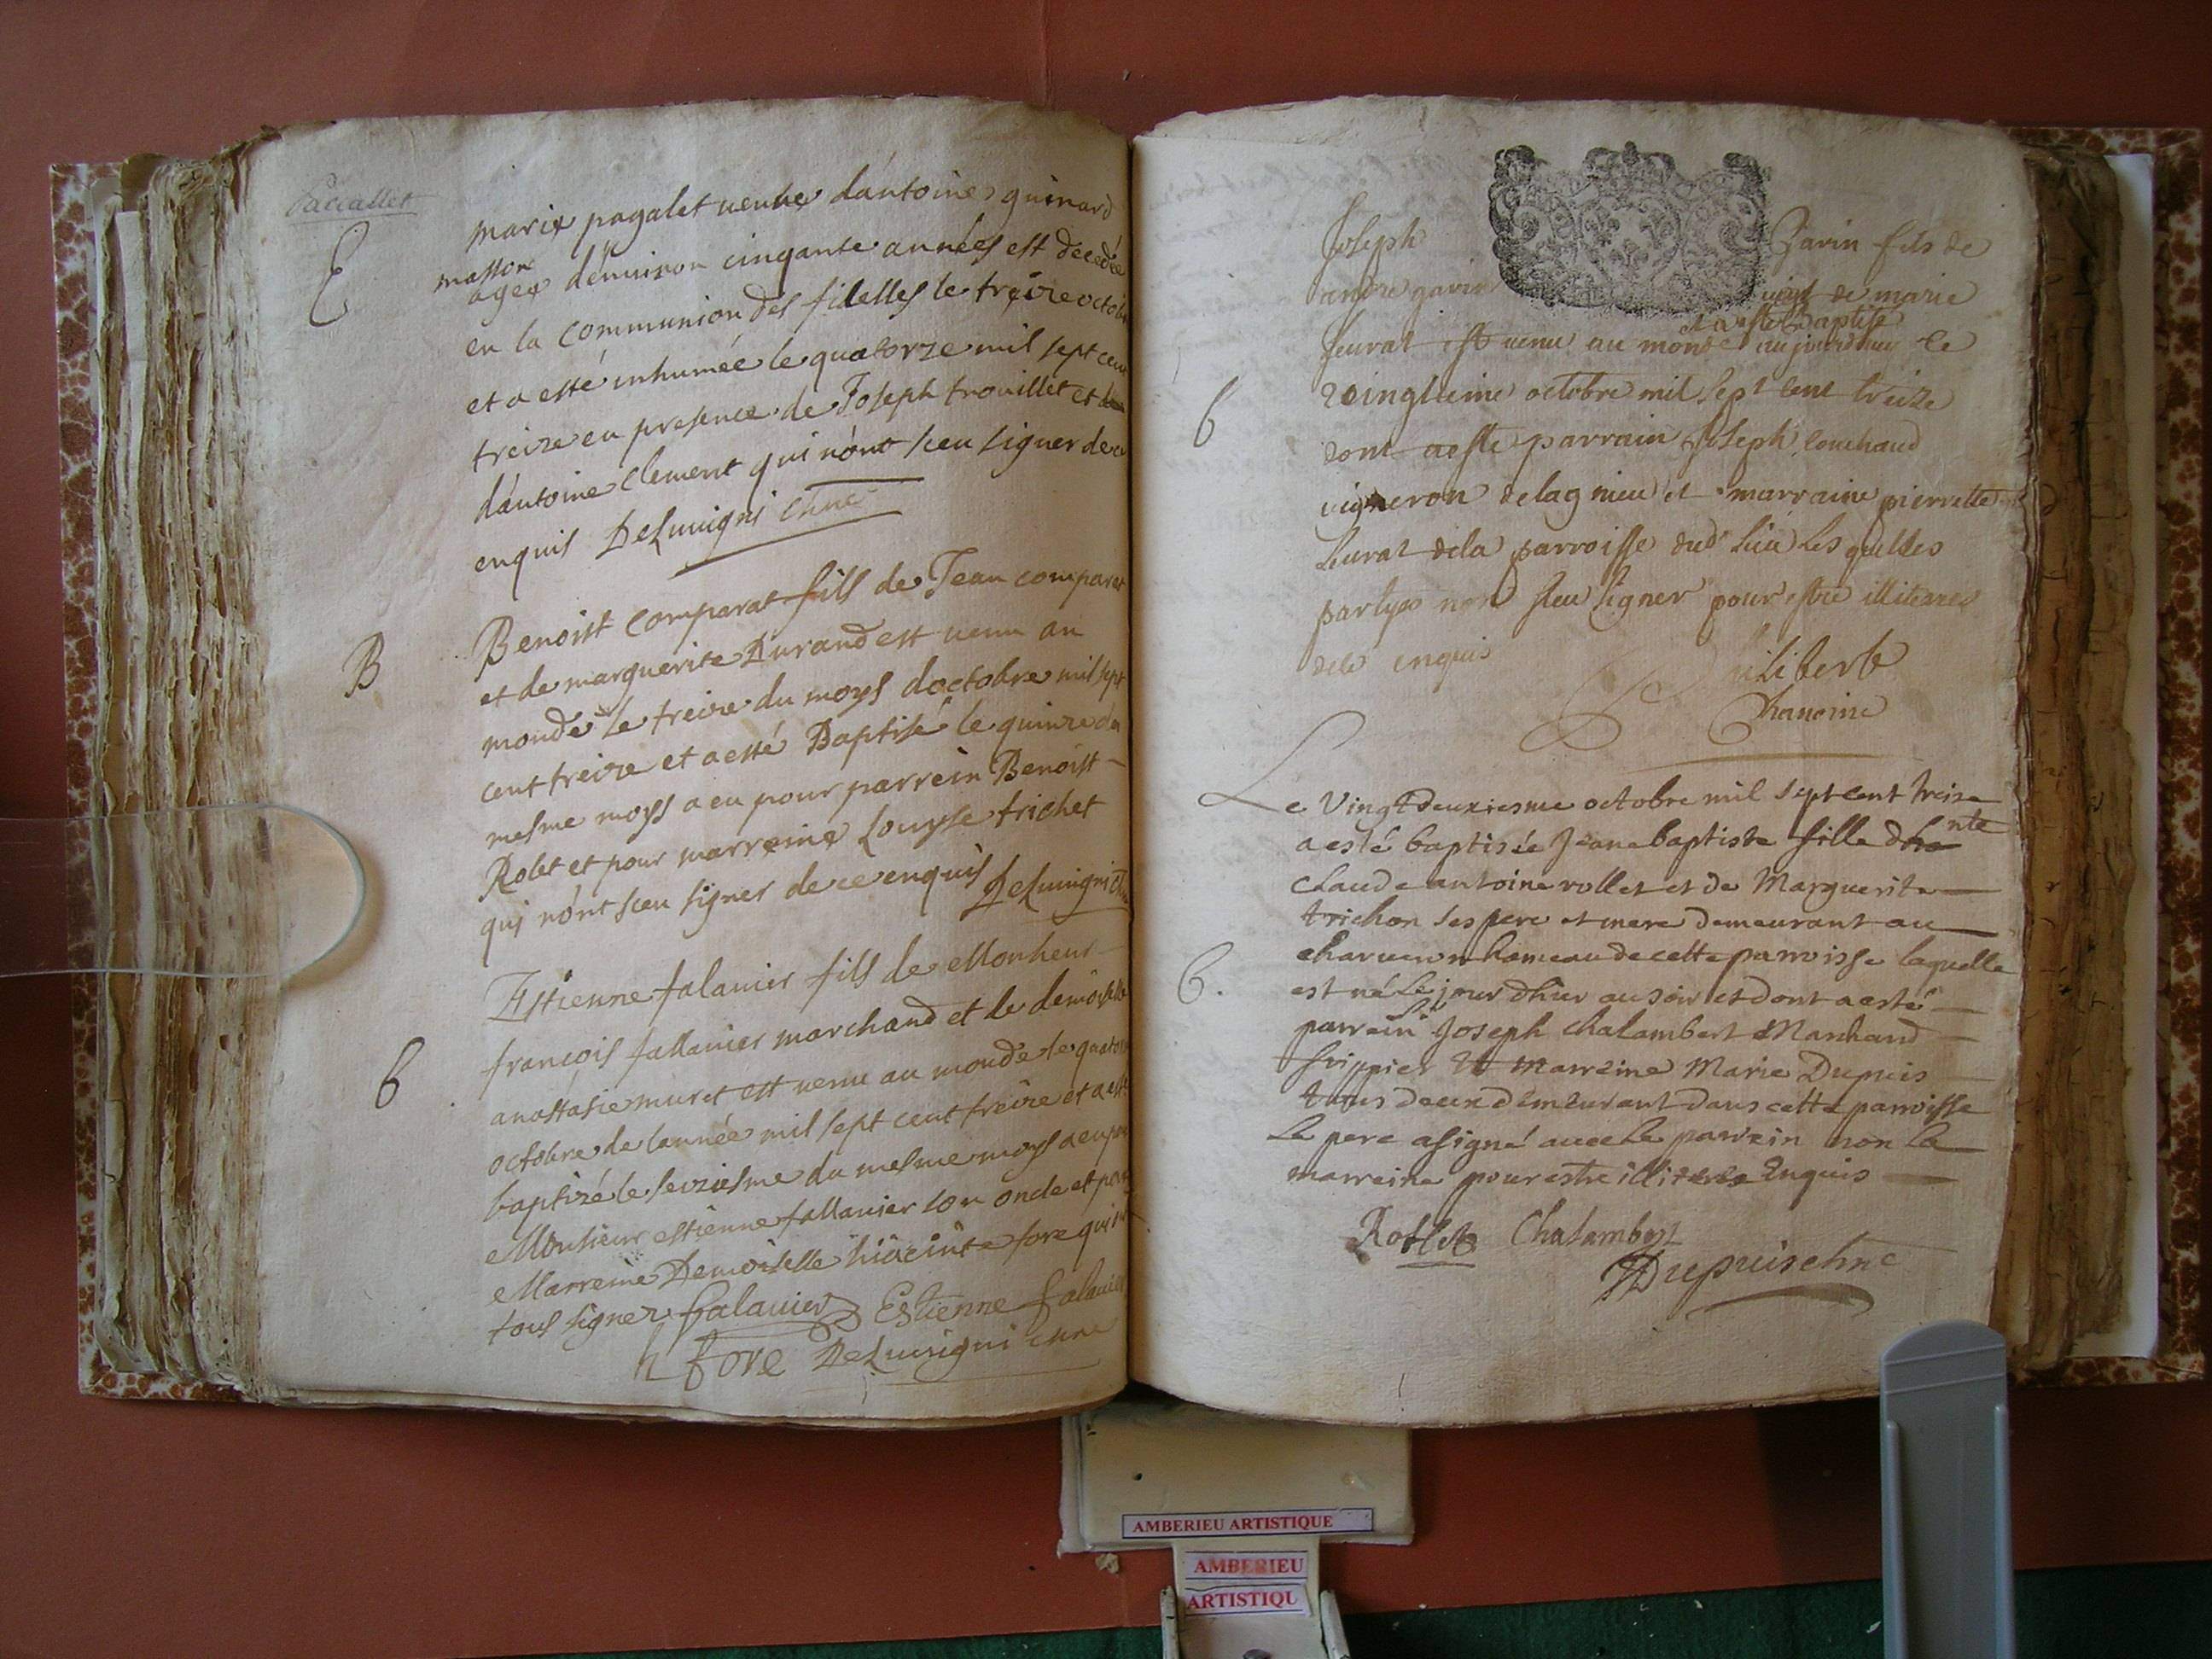 Paccallet
E
marie pagalet veuve d'antoine guinard
masson
agee d'environ cinqante années est decedée
en la communion des fidelles le treize octob
et a esté inhumée le quatorze mil sept cen
treize en presence de Joseph trouillet et
d'antoine Clement qui n'ont sceu signer de ce
enquis Deluvigni Chne
B
Benoist comparat fils de Jean comparat
et de marguerite Durand est venu au
monde le treize du moys doctobre mil sept
cent treize et a esté Baptisé le quinze du
mesme moys a eu pour parrein Benoist
Rolet et pour marreine Louyse trichet
qui n'ont sceu signer de ce enquis Deluvigni Chn
B
Estienne falavier fils de Monsieur
françois fallavier marchand et de demoyselle
anastasie muret est venu au monde le quator
octobre de lannée mil sept cent treize et a esté
baptizé le seiziesme du mesme moys a eu pour
Monsieur estienne fallavier son oncle et pour
Marreine Demoiselle hiacinte fore qui
tous signez falavier Estienne falavier
h fore Deluvigni Chne
Joseph Gavin fils de
andre gavin de marie
leurat est venu au monde
et a este baptisé
aujourdhuy le
vingtieme octobre mil sept cent treize
B
dont a esté parrain Joseph couchaud
vigneron de lagnieu et marraine pierrette
leurat de la parroisse dud lieu les quelles
partyes nont sceu signer pour estre illiterez
dece enquis
Philiberte
Chanoine
Le Vingtdeuxiesme octobre mil sept cent treize
a esté baptisée Jeane baptiste fille
Claude antoine rollet et de Marguerite
trichon ses pere et mere demeurant au
charveron hameau de cette parroisse laquelle
B.
est née le jour dhier au soir et dont a esté
parrein Sr Joseph Chalambert Marchand
frippier et marreine Marie Dupuis
tous deux demeurant dans cette parroisse
Le pere a signé avec le parrein non la
marreine pour estre illiterée Enquis
Rollet Chalambert
Dupuis chne
AMBERIEU ARTISTIQUE
AMBERIEU
ARTISTIQU